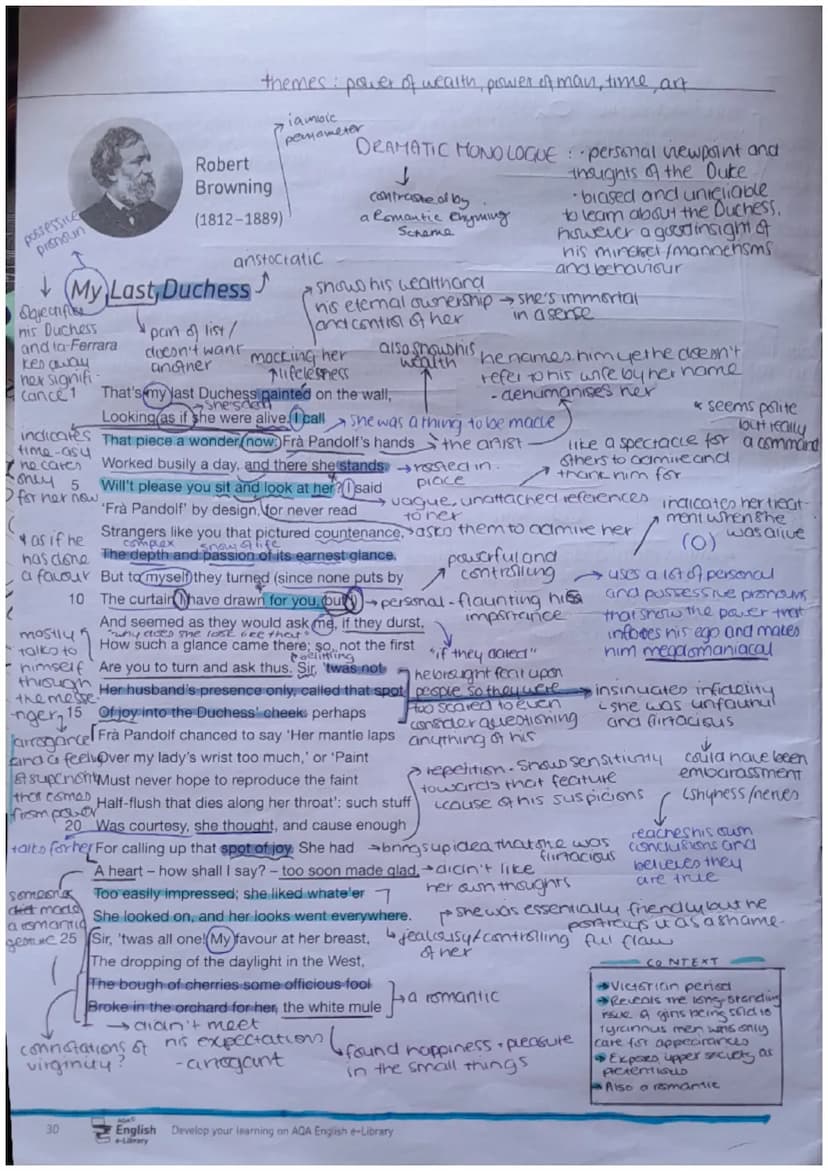 themes: power of wealth, power of man, time, art
iambic
pentameter
DRAMATIC MONOLOGUE : · personal viewpoint and
thoughts of the Duke
· biased and unreliable
to learn about the Duchess,
however a good insight of
his mindset/mannerisms
and behaviour
contrasted by
a Romantic rhyming
scheme
Robert
Browning
(1812–1889)
possessive
pronoun
aristocratic
My Last Duchess
objectifies
his Duchess
and
takes away
her signifi-
cance
Ferrara
part of list/
doesn't want
another
shows his wealth and
his eternal ownership → she's immortal
and control of her in a sense
mocking her
lifelessness
also shows his
wealth
he names him yet he doesn't
refer to his wife by her name
- dehumanises her
* seems polite
but really
a command
1 That's my last Duchess painted on the wall,
she's dead
Looking as if she were alive. I call
→ she was a thing to be made
That piece a wonder, now: Frà Pandolf's hands
→ the artist
Worked busily a day, and there she stands.
→ posed in
place
5 Will't please you sit and look at her? I said
'Frà Pandolf' by design, for never read
Strangers like you that pictured countenance,
complex show of life
The depth and passion of its earnest glance,
But to myself they turned (since none puts by
10 The curtain I have drawn for you, but I)
And seemed as they would ask me, if they durst,
"why does she look like that"
How such a glance came there; so, not the first
Are you to turn and ask thus. Sir, 'twas not
Her husband's presence only, called that spot
15 Of joy into the Duchess' cheek: perhaps
Frà Pandolf chanced to say 'Her mantle laps
Over my lady's wrist too much,' or 'Paint
Must never hope to reproduce the faint
Half-flush that dies along her throat': such stuff
20 Was courtesy, she thought, and cause enough
For calling up that spot of joy. She had
A heart – how shall I say? – too soon made glad,
Too easily impressed; she liked whate'er
She looked on, and her looks went everywhere.
25 Sir, 'twas all one! My favour at her breast,
The dropping of the daylight in the West,
The bough of cherries some officious fool
Broke in the orchard for her, the white mule
indicates
he cares
only
for her now
like a spectacle for
others to admire and
thank him for
vague, unattached references
to her
→ asks them to admire her
indicates her treat-
ment when she
was alive
(O)
* as if he
has done
a favour
powerful and
controlling
→ personal - flaunting his
importance
→ uses a lot of personal
and possessive pronouns
that show the power that
inflates his ego and makes
him megalomaniacal
mostly
talks to
himself
through
the messe-
nger
"if they dared"
he brought fear upon
people so they were
too scared to even
consider questioning
anything of his
→ insinuates infidelity
she was unfaithful
and flirtatious
arrogance
and a feeling
of superiority
that comes
from power
→ repetition - show sensitivity
towards that feature
'cause of his suspicions
could have been
embarassment
shyness/nerves
reaches his own
conclusions and
believes they
are true
talks for her
→ brings up idea that she was
flirtatious
→ didn't like
her own thoughts
someone
a romantic
gesture
→ she was essentially friendly but he
portrays it as a shame-
ful flaw
jealousy/controlling
of her
→ a romantic
→ didn't meet
his expectations
- arrogant
connotations of
virginity?
found happiness + pleasure
in the small things
CONTEXT
→ Victorian period
→ Reveals the long-standing
issue of girls being sold to
tyrinnus men who only
care for appearances
→ Exposes upper society as
pretentious
→ Also a romantic
30
AQA
English
e-Library
Develop your learning on AQA English e-Library